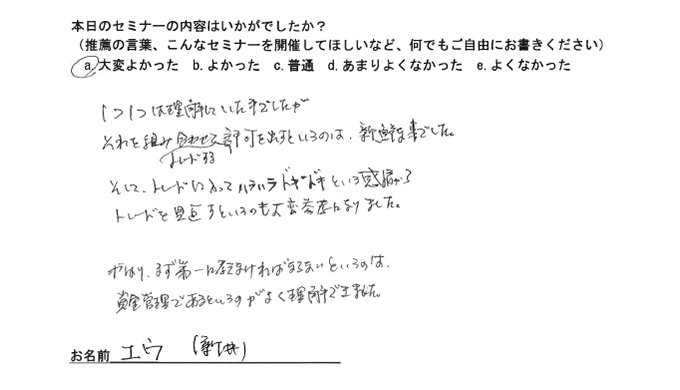 本日のセミナーの内容はいかがでしたか？
（推薦の言葉、こんなセミナーを開催してほしいなど、何でもご自由にお書きください）
a.大変よかった b.よかった c.普通 d.あまりよくなかった e.よくなかった
1つ1つは理解していた事でしたが
それを組み合わせて許可を出すというのは、新鮮な事でした。
トレードする
そして、トレードによってハラハラドキドキという感情から
トレードを見直すというのも大変参考になりました。
やはり、まず第一に考えなければならないというのは、
資金管理であるというのがよく理解できました。
お名前 エウ (新井)